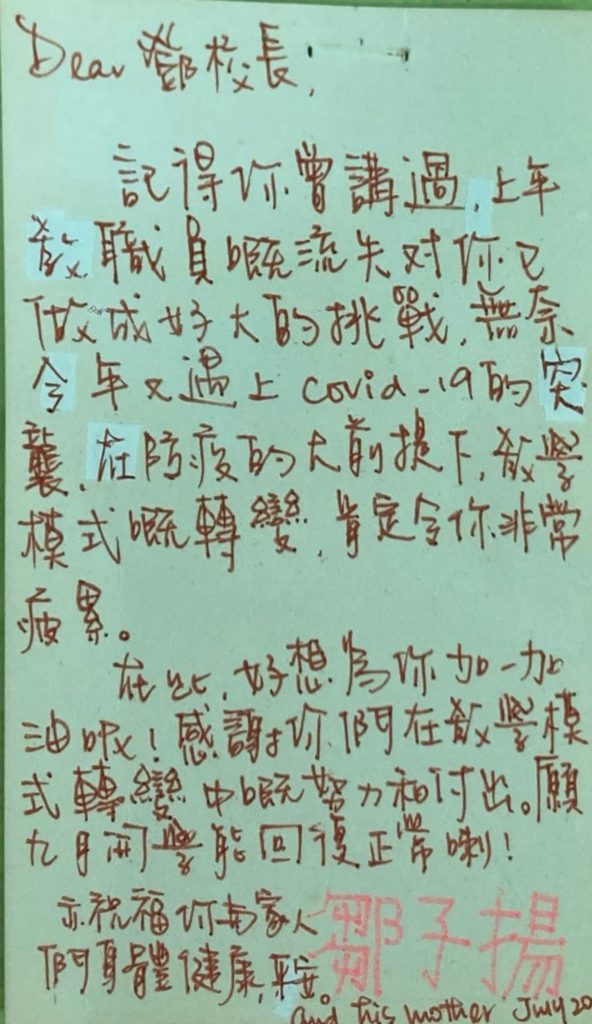 Dear 鄧校長,
記得你曾講過,上年
教職員嘅流失对你已
做成好大的挑戰,無奈
今年又遇上 covid-19的突
襲,在防疫的大前提下,教學
模式嘅轉變,肯定令你非常
疲累。
在此,好想為你加一加
油呀!感謝你們在教學模
式轉變中嘅努力和付出。願
九月開學能回復正常喇!
亦祝福你与家人
們身體健康,平安。
鄒子揚
and his mother July 20